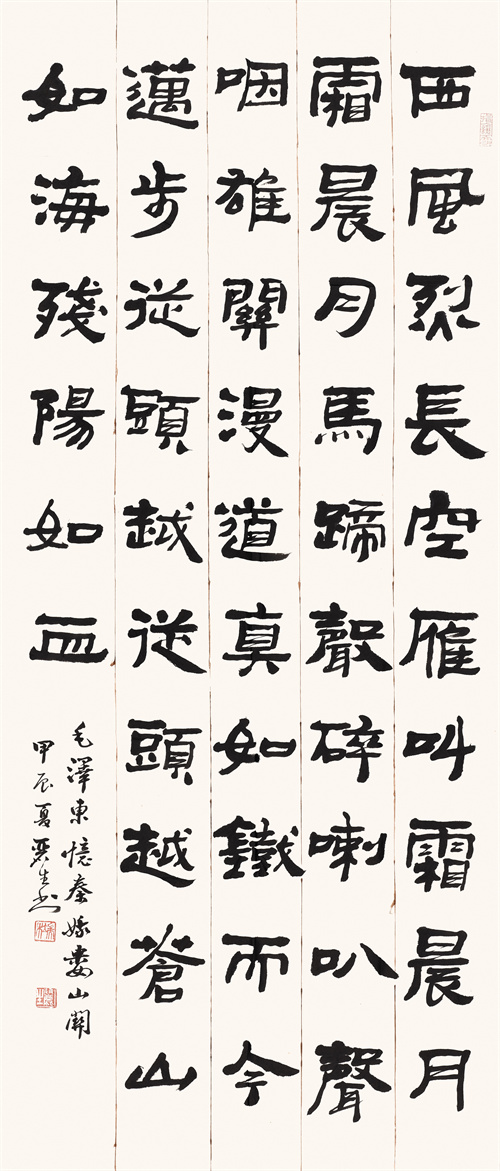 西風烈長空雁叫霜晨月
霜晨月馬蹄聲碎喇叭聲
咽雄關漫道真如鐵而今
邁步從頭越從頭越蒼山
如海殘陽如血
毛澤東憶秦娥婁山關
甲辰夏生书